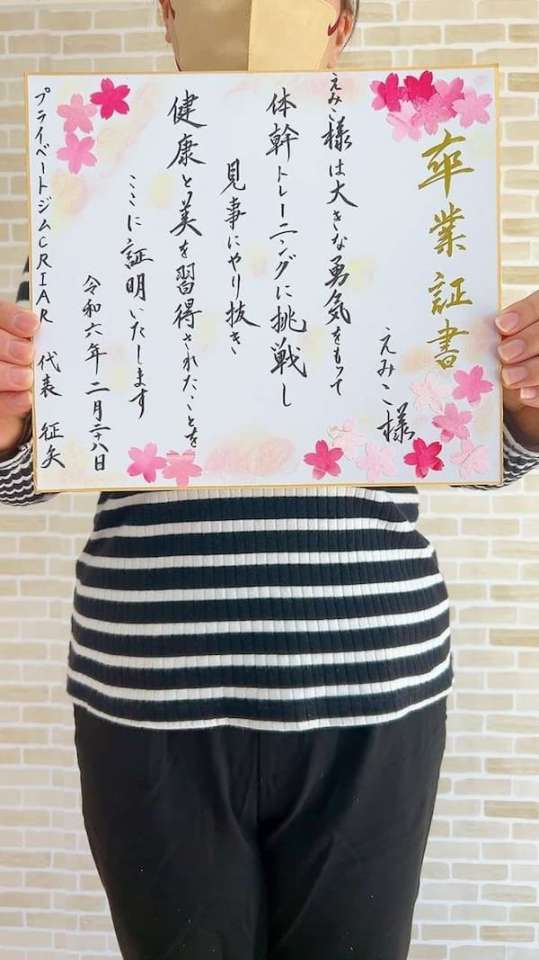 卒業証書
えみこ様
えみこ様は大きな勇気をもって
体幹トレーニングに挑戦し
見事にやり抜き
健康と美を習得されたことを
ここに証明いたします
令和六年二月二十八日
プライベートジムCRIAR 代表 征矢